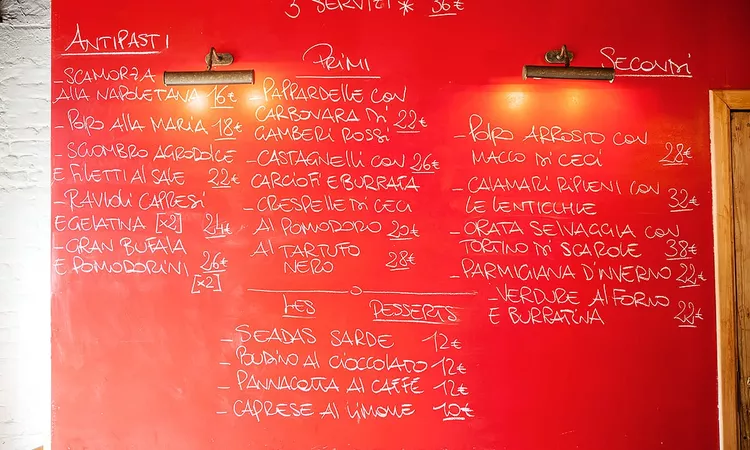 3 SERVIZI * 36€
ANTIPASTI
- SCAMORZA
ALLA NAPOLETANA 16€
- POLPO ALLA MARIA 18€
- SGOMBRO AGRODOLCE
E FILETTI AL SALE 22€
- RAVIOLI CAPRESI
E GELATINA [x2] 24€
- GRAN BUFALA
E POMODORINI 26€
[x2]
PRIMI
- PAPPARDELLE CON
CARBONARA DI
GAMBERI ROSSI 22€
- CASTAGNELLI CON 26€
CARCIOFI E BURRATA
- CRESPELLE DI CECI
AL POMODORO 20€
AL TARTUFO
NERO 28€
SECONDI
- POLPO ARROSTO CON
MACCO DI CECI 28€
- CALAMARI RIPIENI CON
LE LENTICCHIE 32€
- ORATA SELVAGGIA CON
TORTINO DI SCAROLE 38€
- PARMIGIANA D'INVERNO 22€
- VERDURE AL FORNO
E BURRATINA 22€
LES DESSERTS
- SEADAS SARDE 12€
- BUDINO AL CIOCCOLATO 12€
- PANNACOTTA AL CAFFÈ 12€
- CAPRESE AL LIMONE 10€